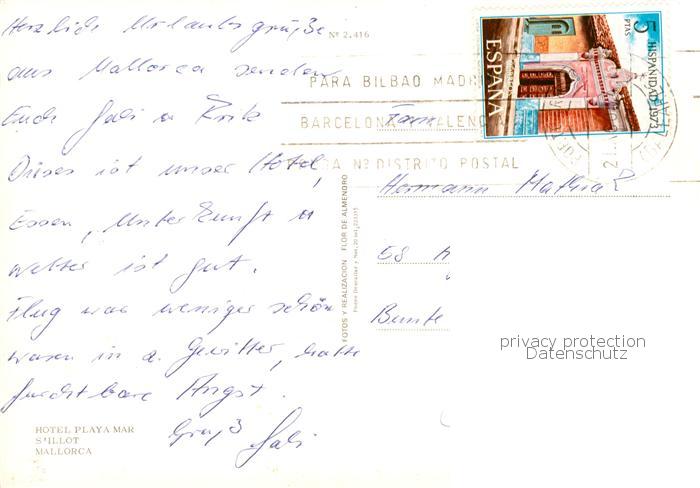 Herzlich Urlaubsgrüße
aus Mallorca senden
Euch Gabi u
Dieses ist unser Hotel,
Essen, Unterkunft u
Wetter ist gut.
Flug war weniger schön
waren in a. Gewitter, hatte
furchtbare Angst.
Gruß Gabi
HOTEL PLAYA MAR
S'ILLOT
MALLORCA
Nº 2.416
FOTOS Y REALIZACION FLOR DE ALMENDRO
PARA BILBAO MADR
BARCELONA VALENCIA
Nº DISTRITO POSTAL
5 PTAS
HISPANIDAD-1973
ESPAÑA
Fam
Hermann
58
Bunte
privacy protection
Datenschutz